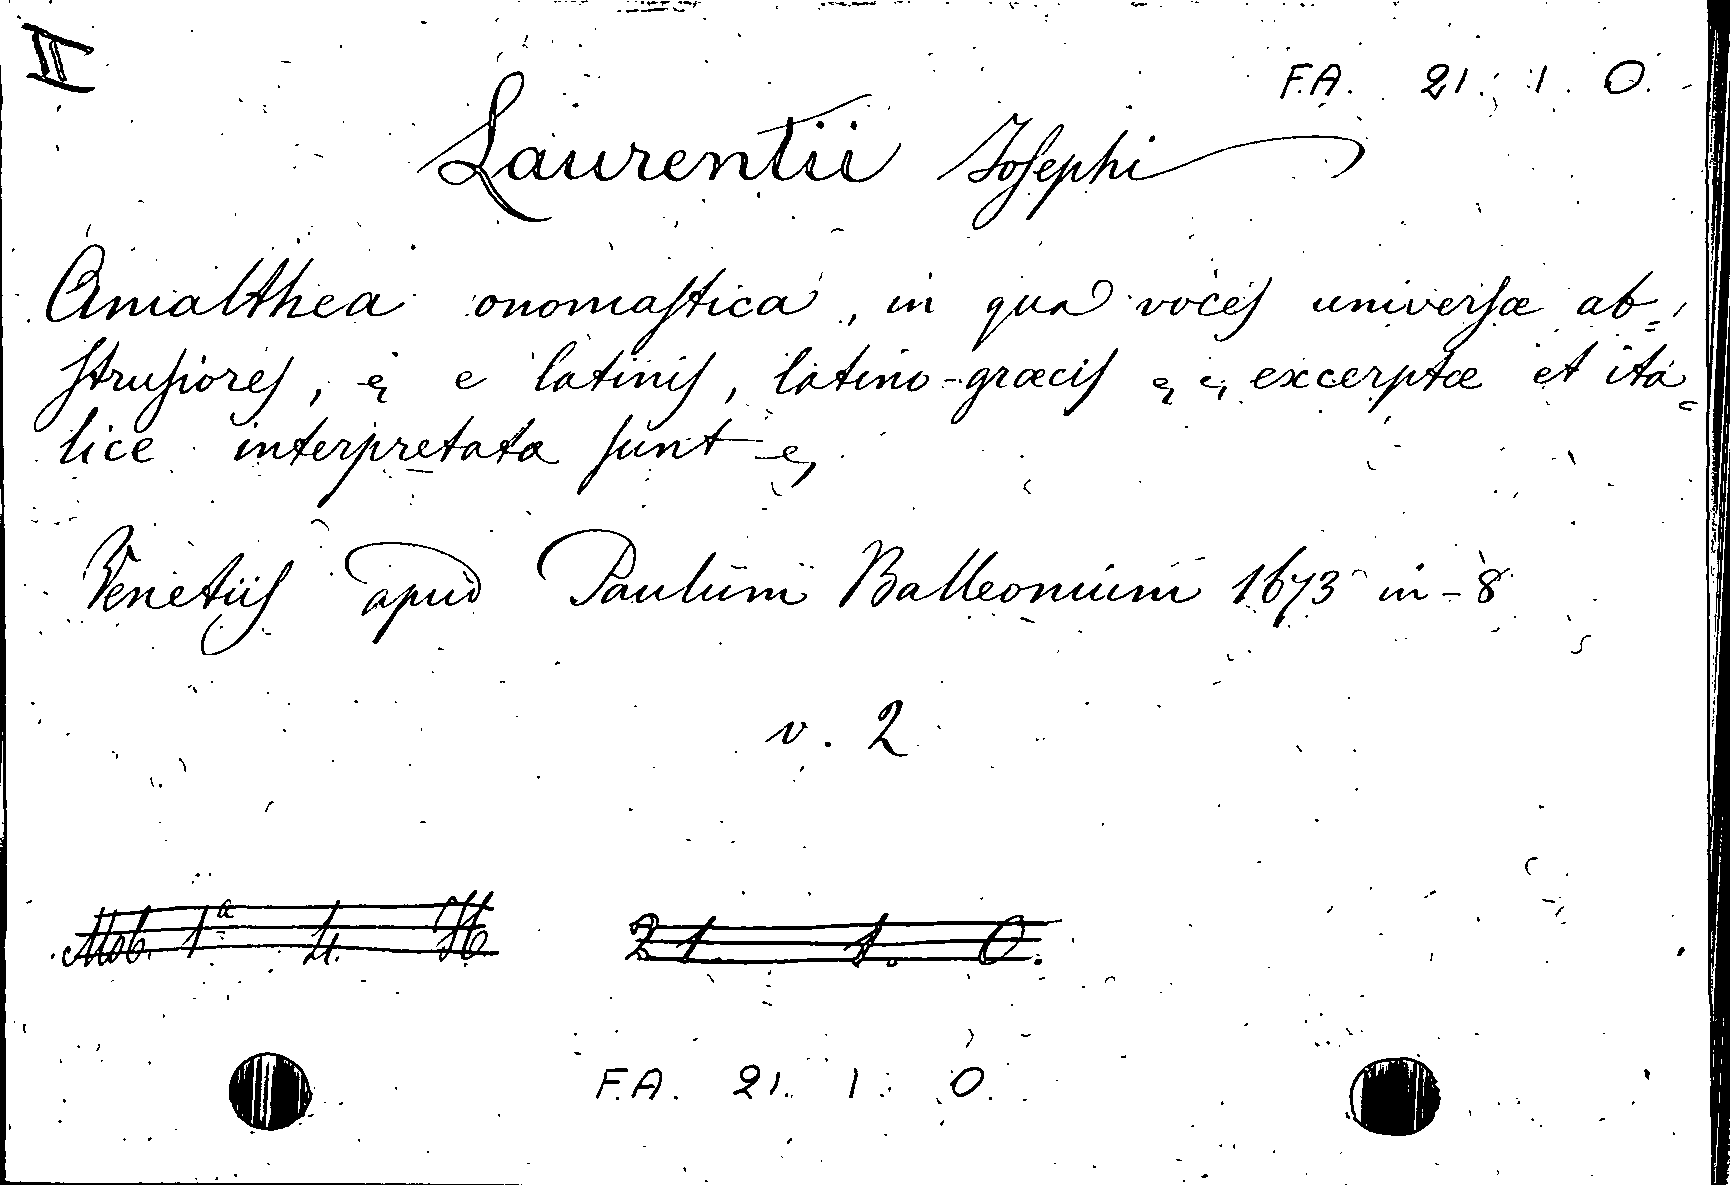 II
F.A. 21. 1. O.
Laurentii Josephi
Amalthea onomastica, in qua voces universæ ab=
strusiores, & e latinis, latino-græcis & & excerptæ et ita=
lice interpretatæ sunt &
Venetiis apud Paulum Balleonium 1673 in-8
v. 2
Mob. 1ª 4. H
21. 1. O.
F.A. 21. 1. O.